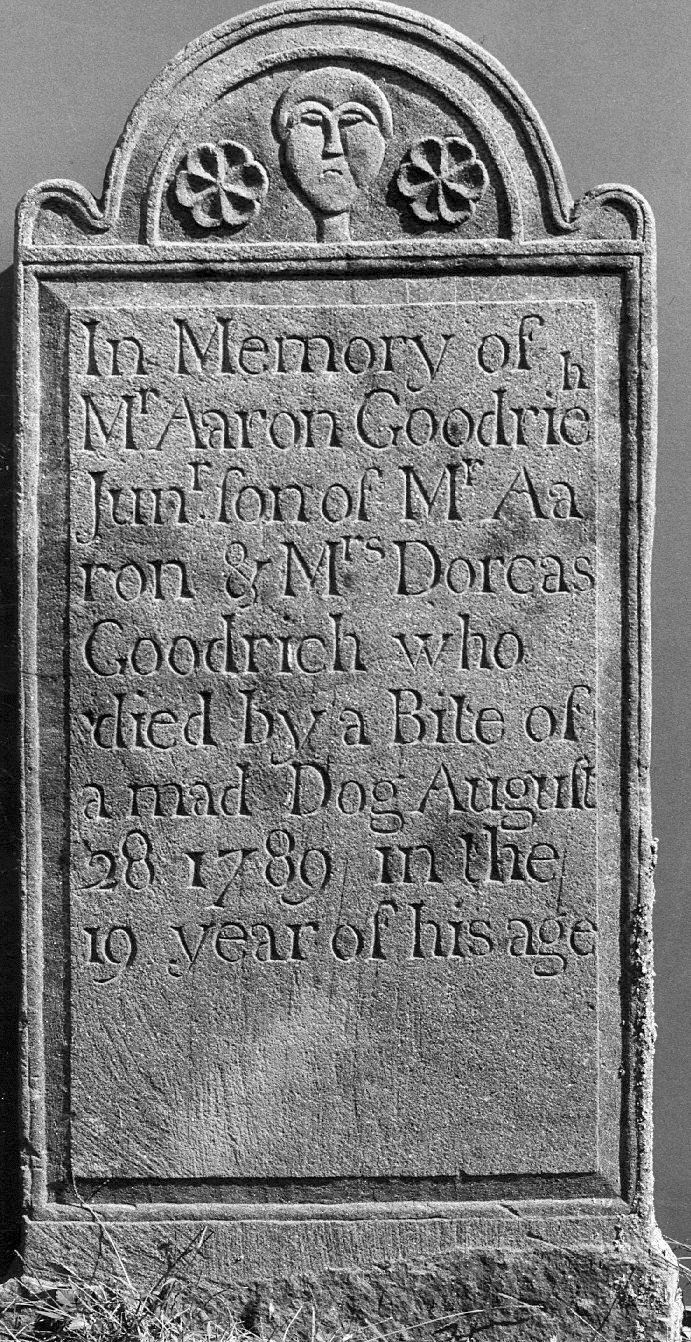 In Memory of
Mʳ Aaron Goodrich
Junʳ. ſon of Mʳ Aa
ron & Mʳˢ Dorcas
Goodrich who
died by a Bite of
a mad Dog Auguſt
28 1789 in the
19 year of his age